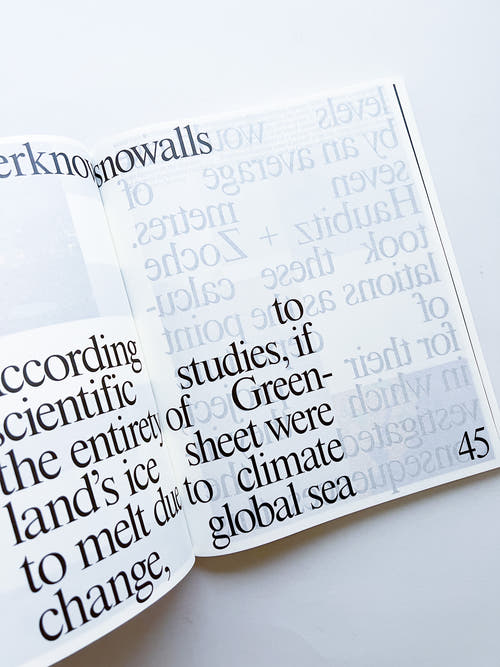 erknow snowalls
According to
scientific studies, if
the entirety of Green-
land's ice sheet were
to melt due to climate
change, global sea
45
levels wou
by an average of
seven metres.
Haubitz + Zoche
took these calcu-
lations as the point
of
for their
in which
vestigated
conseque